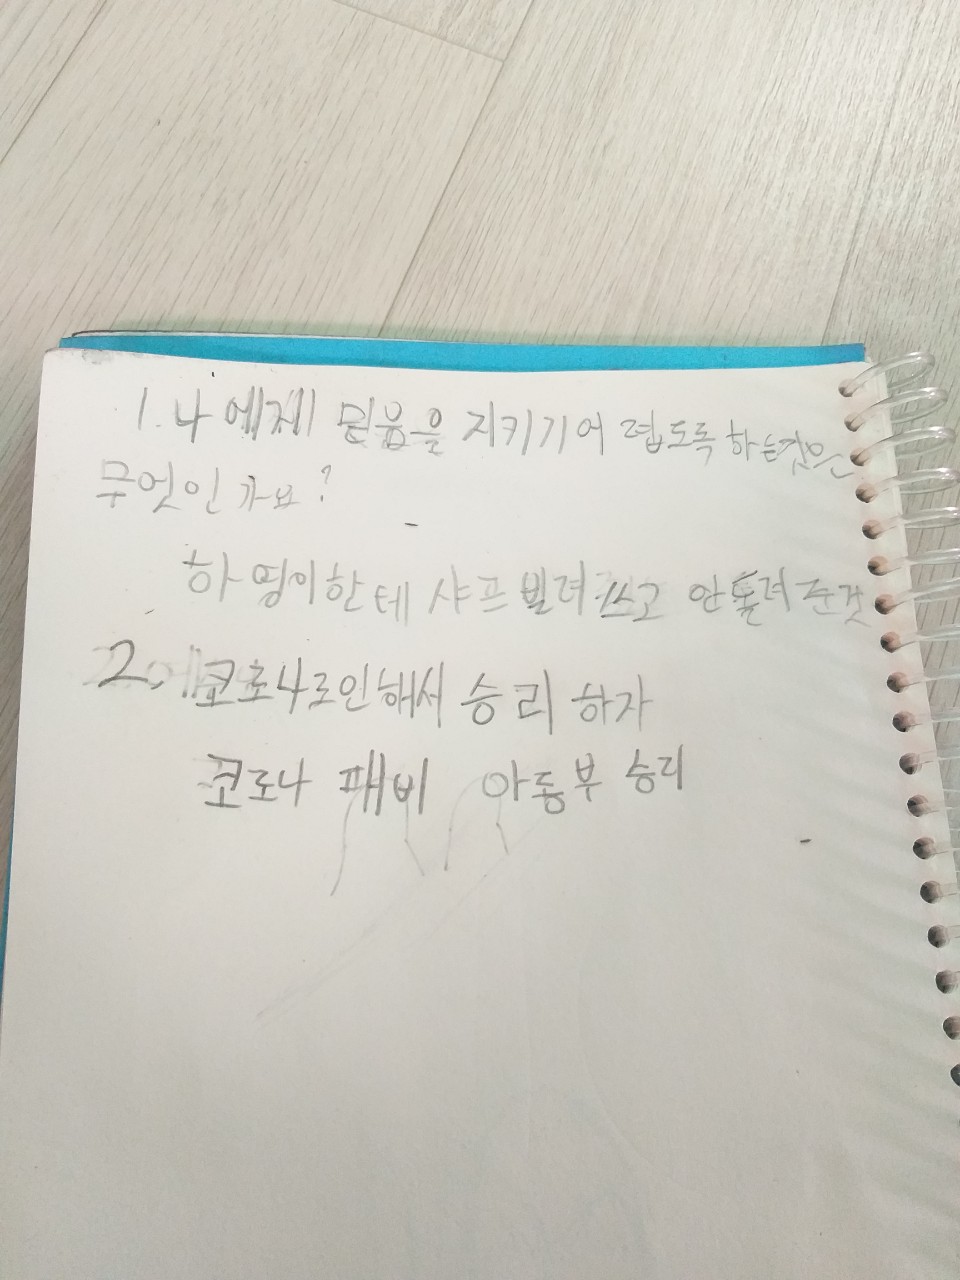 1. 나에게 믿음을 지키기어렵도록 하는것은
무엇인가요?
하영이한테 샤프빌려쓰고 안돌려준것
2. 코로나로인해서 승리하자
코로나 패비 아동부 승리